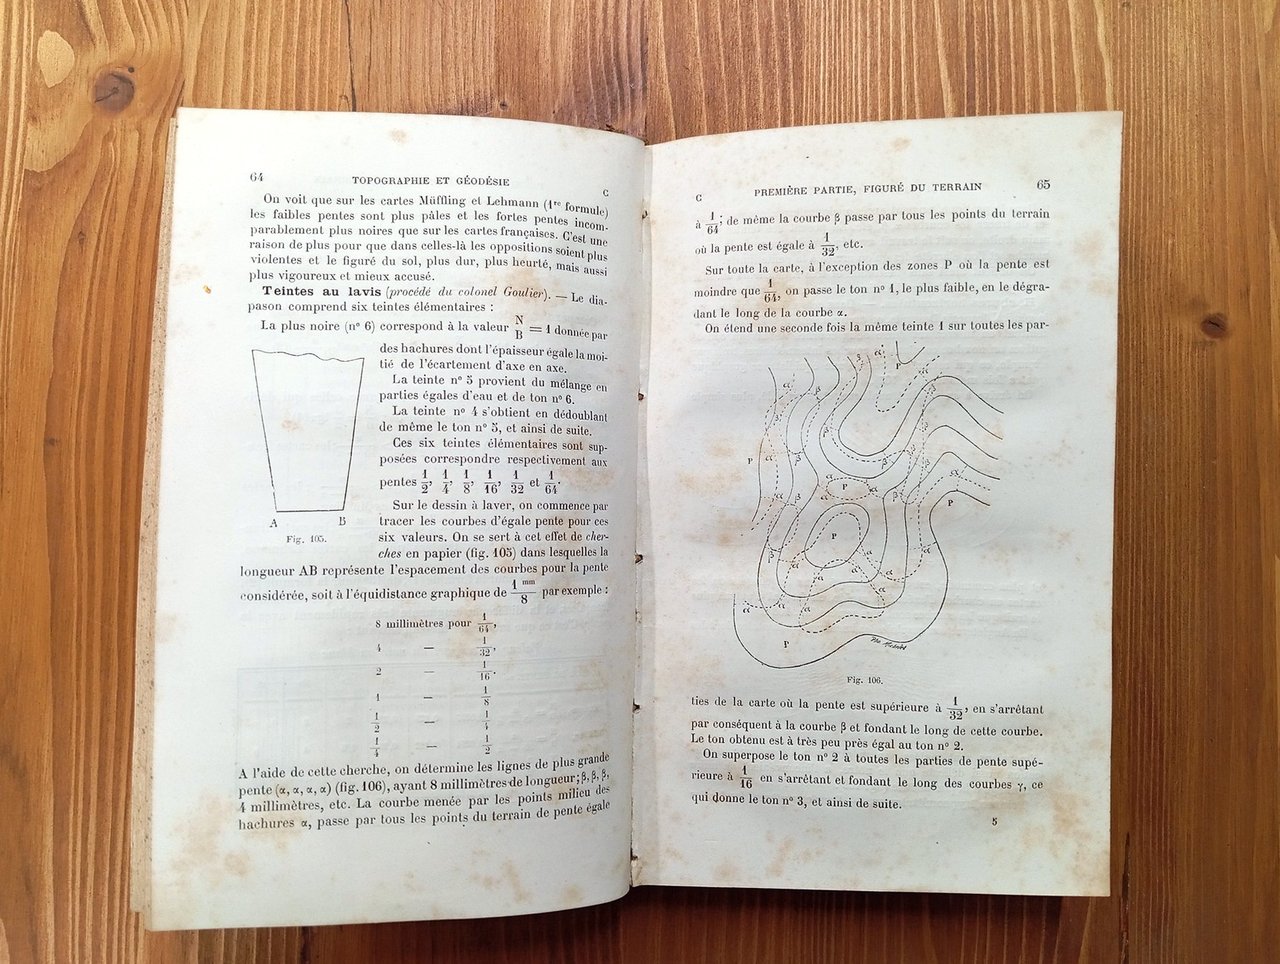 64 TOPOGRAPHIE ET GÉODÉSIE C
On voit que sur les cartes Müffling et Lehmann (1re formule)
les faibles pentes sont plus pâles et les fortes pentes incom-
parablement plus noires que sur les cartes françaises. C'est une
raison de plus pour que dans celles-là les oppositions soient plus
violentes et le figuré du sol, plus dur, plus heurté, mais aussi
plus vigoureux et mieux accusé.
Teintes au lavis (procédé du colonel Goulier). — Le dia-
pason comprend six teintes élémentaires :
La plus noire (n° 6) correspond à la valeur N/B = 1 donnée par
des hachures dont l'épaisseur égale la moi-
tié de l'écartement d'axe en axe.
La teinte n° 5 provient du mélange en
parties égales d'eau et de ton n° 6.
La teinte n° 4 s'obtient en dédoublant
de même le ton n° 5, et ainsi de suite.
Ces six teintes élémentaires sont sup-
posées correspondre respectivement aux
pentes 1/2, 1/4, 1/8, 1/16, 1/32 et 1/64.
Sur le dessin à laver, on commence par
tracer les courbes d'égale pente pour ces
six valeurs. On se sert à cet effet de cher-
ches en papier (fig. 105) dans lesquelles la
A B
Fig. 105.
longueur AB représente l'espacement des courbes pour la pente
considérée, soit à l'équidistance graphique de 1/8 mm par exemple :
8 millimètres pour 1/64,
4 — 1/32,
2 — 1/16.
1 — 1/8
1/2 — 1/4
1/4 — 1/2
A l'aide de cette cherche, on détermine les lignes de plus grande
pente (α, α, α, α) (fig. 106), ayant 8 millimètres de longueur; β, β, β,
4 millimètres, etc. La courbe menée par les points milieu des
hachures α, passe par tous les points du terrain de pente égale
C PREMIÈRE PARTIE, FIGURÉ DU TERRAIN 65
à 1/64; de même la courbe β passe par tous les points du terrain
où la pente est égale à 1/32, etc.
Sur toute la carte, à l'exception des zones P où la pente est
moindre que 1/64, on passe le ton n° 1, le plus faible, en le dégra-
dant le long de la courbe α.
On étend une seconde fois la même teinte 1 sur toutes les par-
β α P
α β α
β β
P α β β
α α α
α β P α β P
P
β α α α
α α α α
α α α α
P
Fig. 106.
ties de la carte où la pente est supérieure à 1/32, en s'arrêtant
par conséquent à la courbe β et fondant le long de cette courbe.
Le ton obtenu est à très peu près égal au ton n° 2.
On superpose le ton n° 2 à toutes les parties de pente supé-
rieure à 1/16 en s'arrêtant et fondant le long des courbes γ, ce
qui donne le ton n° 3, et ainsi de suite.
5